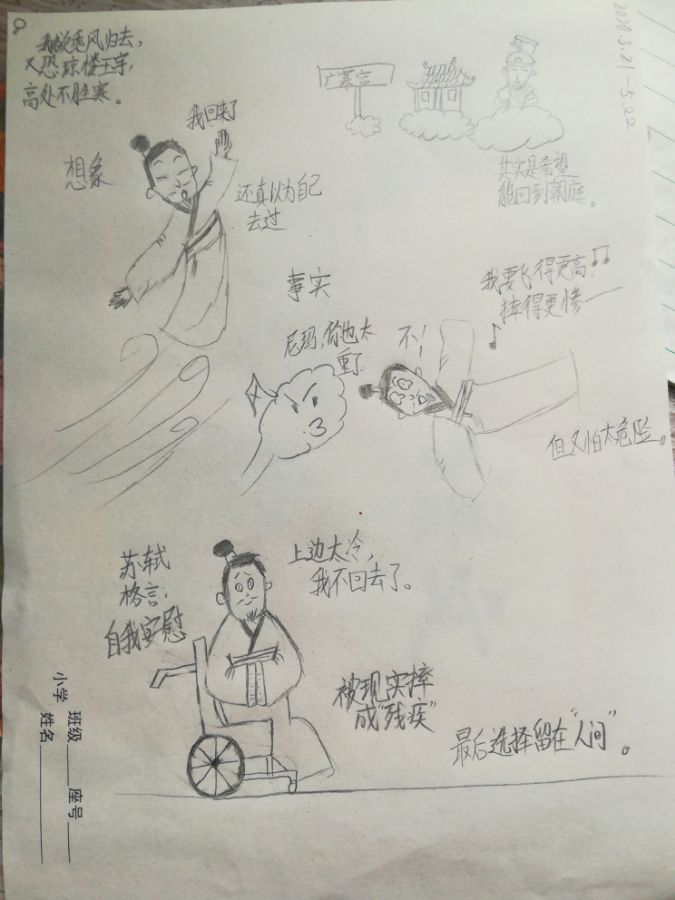 我欲乘风归去，
又恐琼楼玉宇，
高处不胜寒。
2020.5.21-5.22
广寒宫
我回来了
想象
还真以为自己
去过
其实是希望
能回到朝庭。
事实
我要飞得更高！
摔得更惨一
尼玛，你也太
重了
不！
但又怕太危险。
苏轼
格言：
自我安慰
上边太冷，
我不回去了。
被现实摔
成“残疾”
最后选择留在“人间”。
小学 班级 座号
姓名